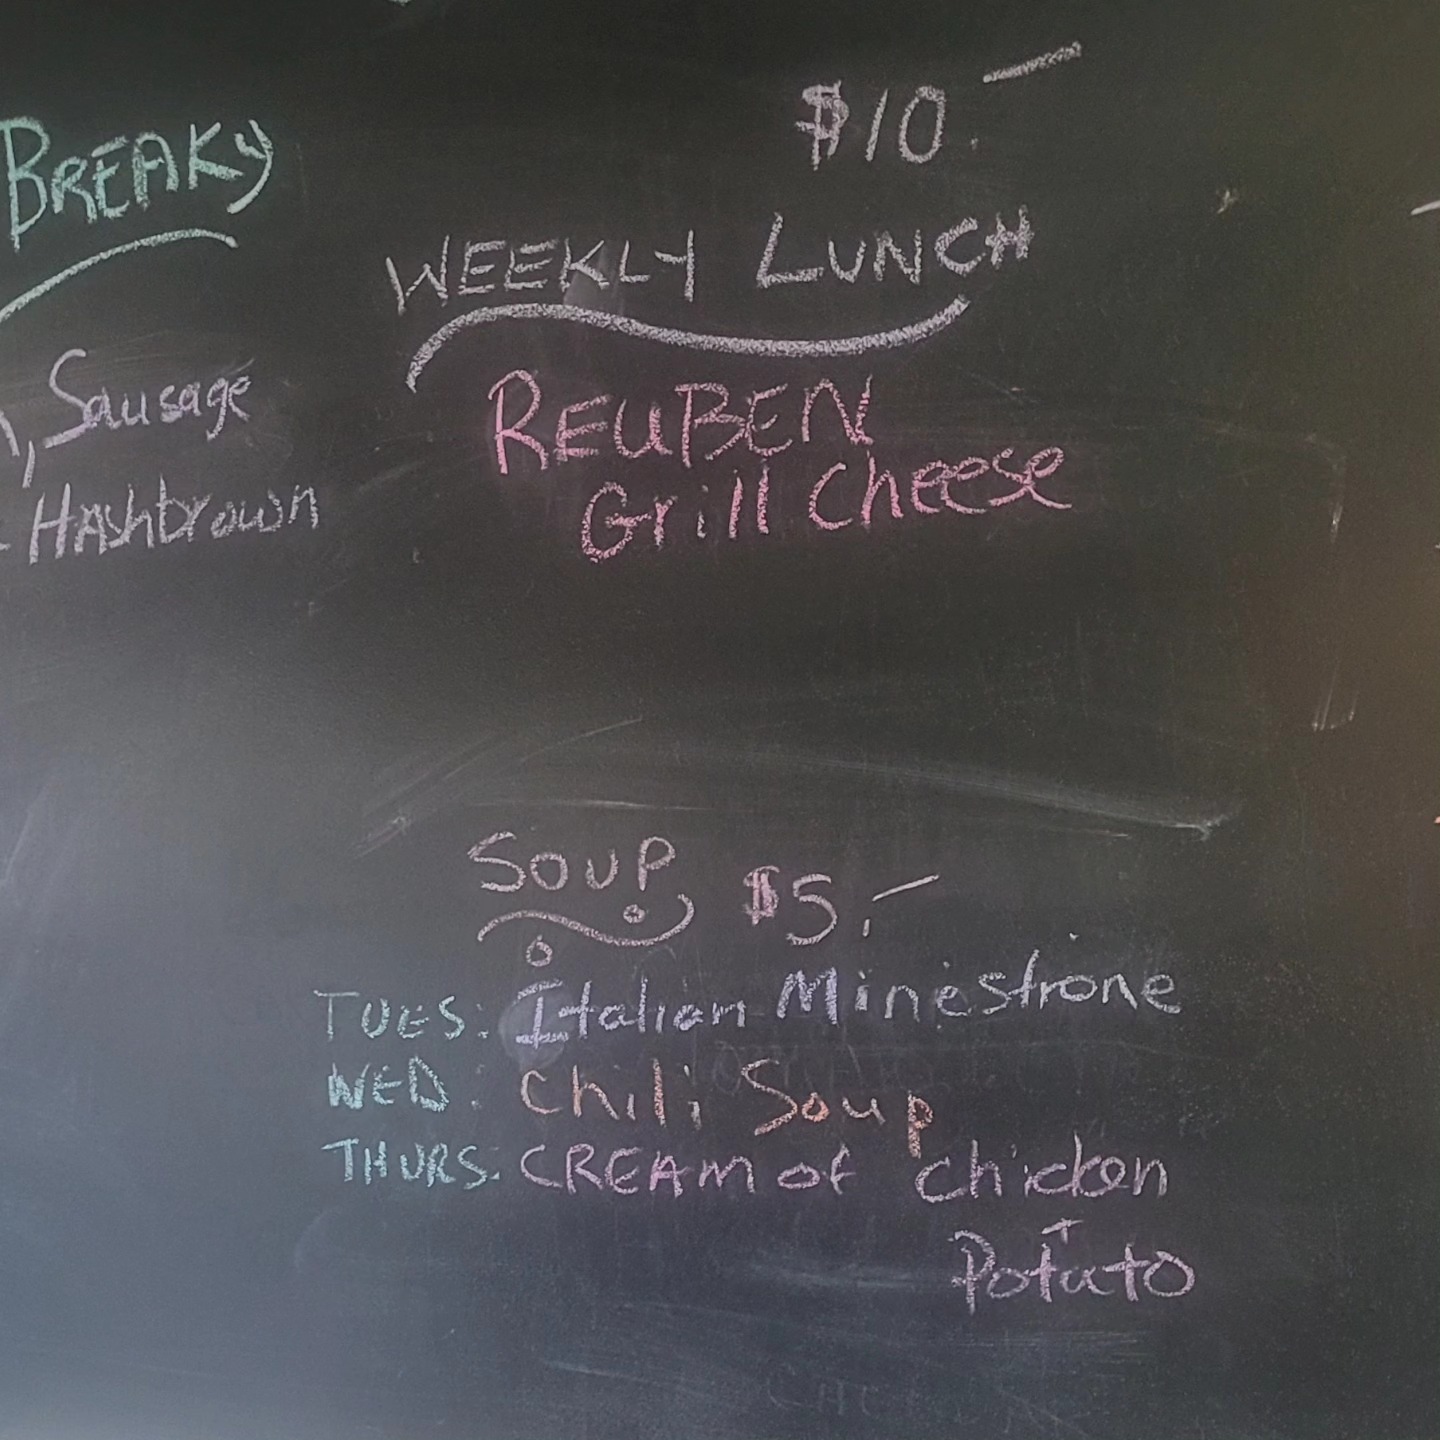 BREAKY
Sausage
Hashbrown
$10.-
WEEKLY LUNCH
REUBEN
Grill Cheese
SOUP $5.-
TUES: Italian Minestrone
WED: Chili Soup
THURS: CREAM of Chicken
Potato